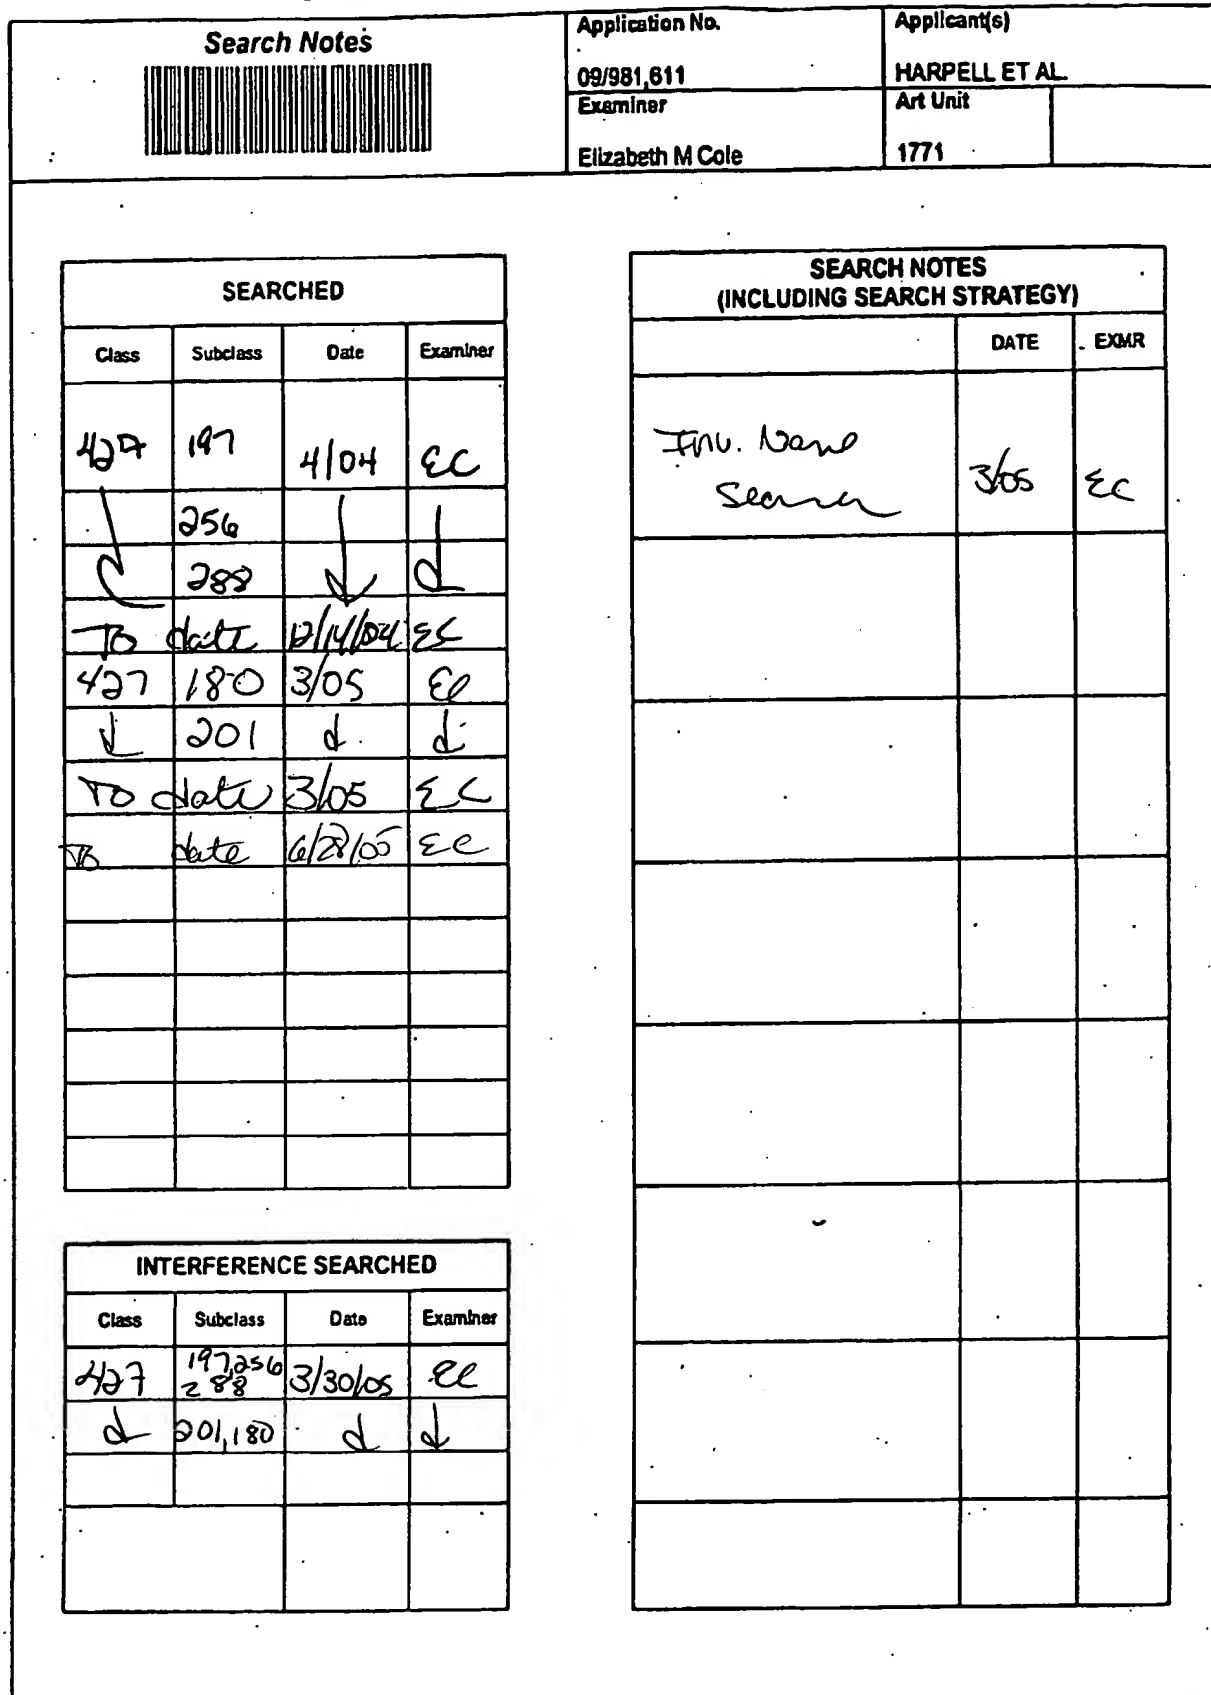 Search Notes
Application No.
09/981,611
Applicant(s)
HARPELL ET AL.
Examiner
Elizabeth M Cole
Art Unit
1771
SEARCHED
Class Subclass Date Examiner
427 197 4/04 EC
256
288
To date 12/14/04 EC
427 180 3/05 EC
201
To date 3/05 EC
To date 6/28/05 EC
INTERFERENCE SEARCHED
Class Subclass Date Examiner
427 197,256 288 3/30/05 EC
201,180
SEARCH NOTES
(INCLUDING SEARCH STRATEGY)
DATE EXMR
Inv. Name
Search 3/05 EC